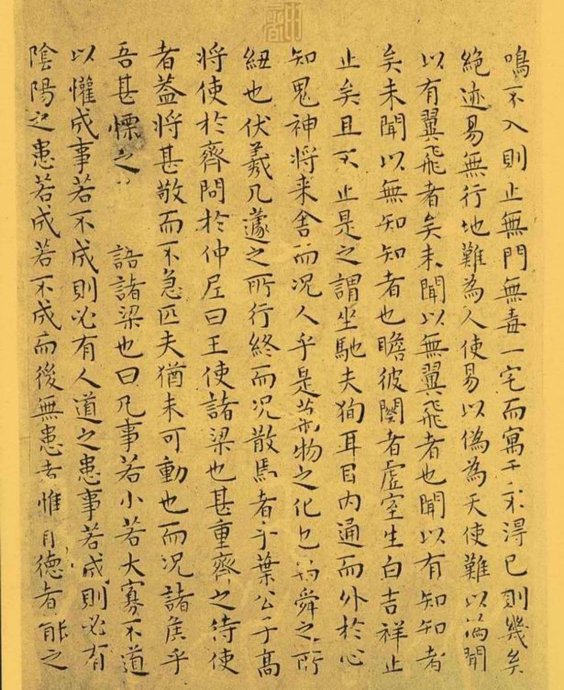 鳴不入則止無門無毒一宅而寓于不得已則幾矣
絕迹易無行地難為人使易以偽為天使難以偽聞
以有翼飛者矣未聞以無翼飛者也聞以有知知者
矣未聞以無知知者也瞻彼闋者虛室生白吉祥止
止矣且不止是之謂坐馳夫徇耳目内通而外於心
知鬼神將来舍而况人乎是萬物之化也禹舜之所
紐也伏羲几蘧之所行終而况散焉者乎葉公子高
將使於齊問於仲尼曰王使諸梁也甚重齊之待使
者蓋將甚敬而不急匹夫猶未可動也而况諸侯乎
吾甚慄之 語諸梁也曰凡事若小若大寡不道
以懽成事若不成則必有人道之患事若成則必有
陰陽之患若成若不成而後無患者惟有德者能之